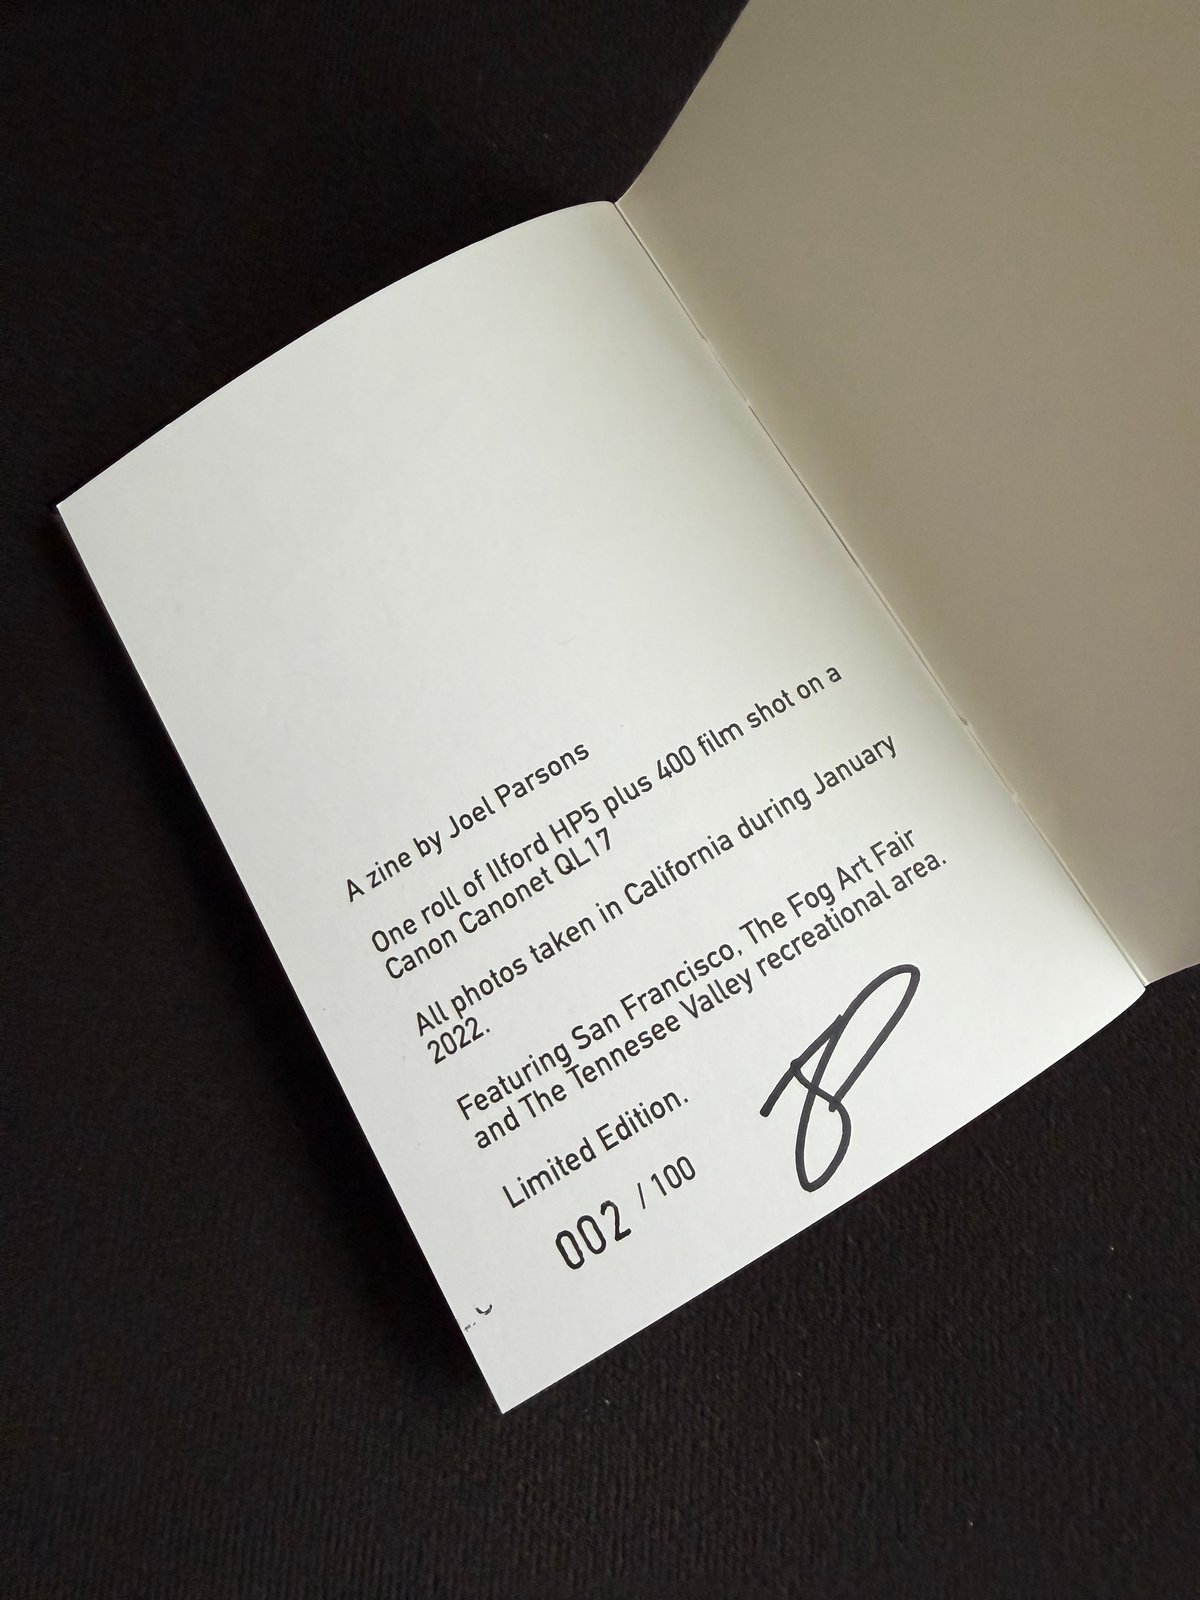 A zine by Joel Parsons
One roll of Ilford HP5 plus 400 film shot on a
Canon Canonet QL17
All photos taken in California during January
2022.
Featuring San Francisco, The Fog Art Fair
and The Tennesee Valley recreational area.
Limited Edition.
002 / 100